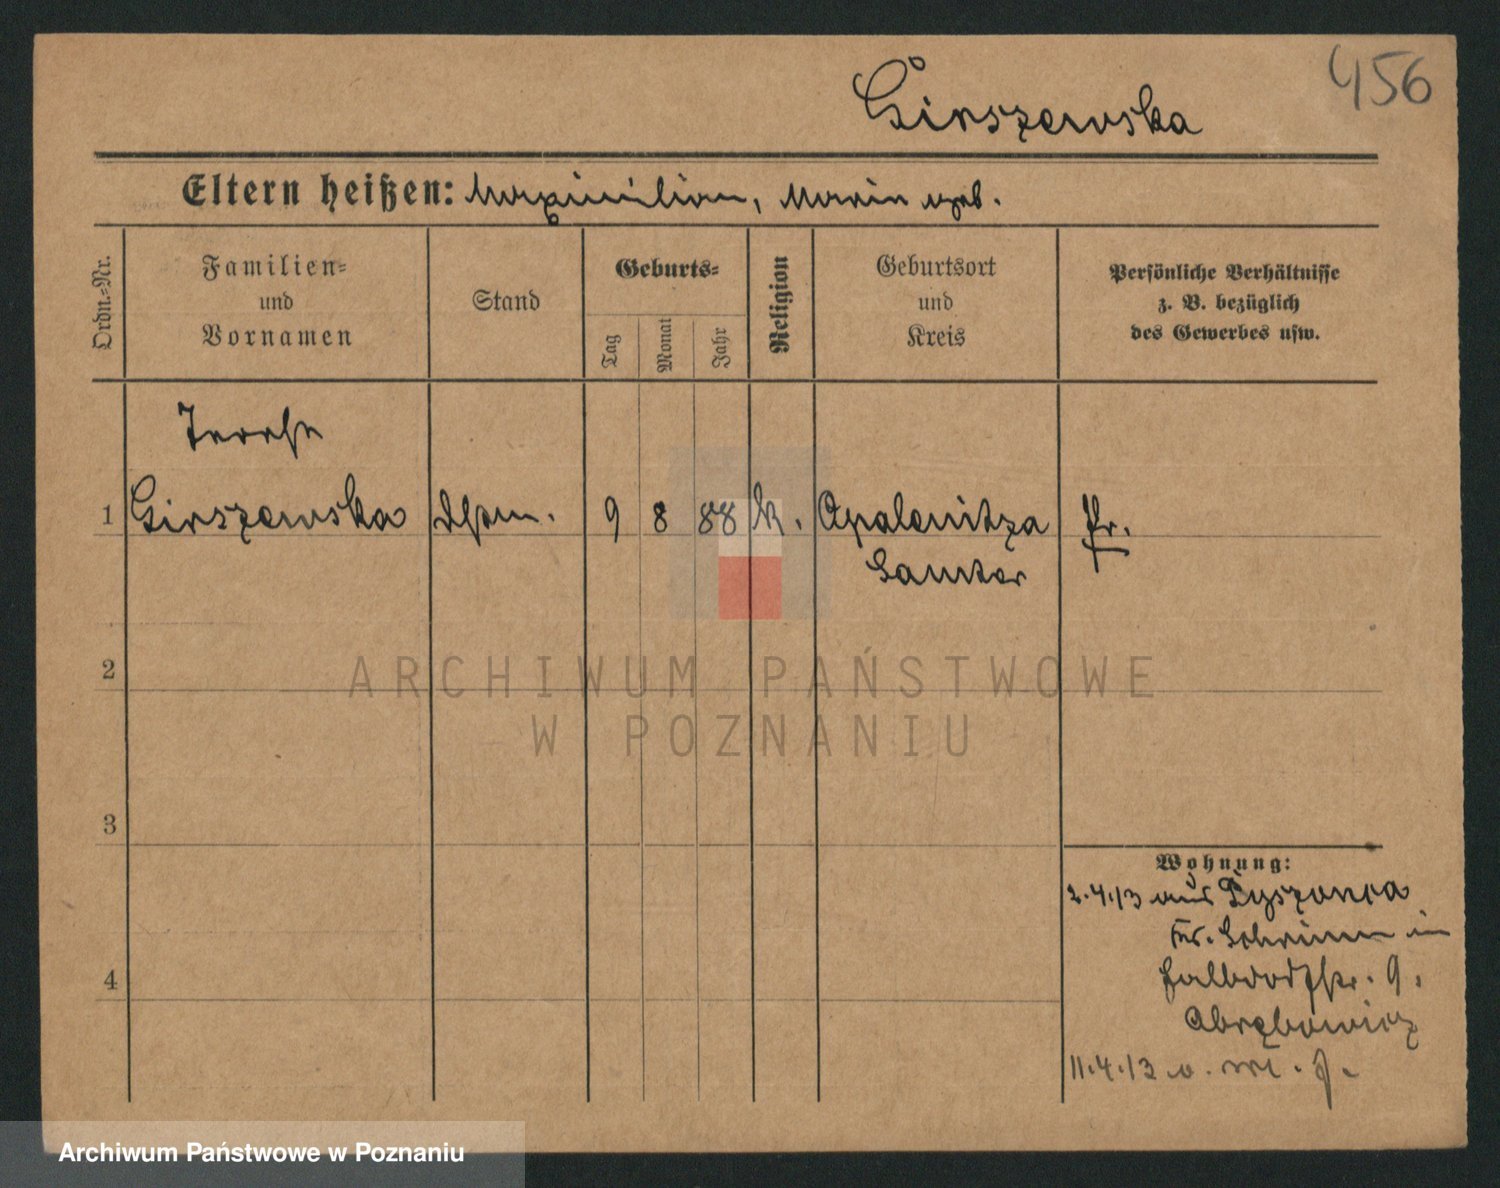 456
Girszewska
Eltern heißen: Maximilian, Marie geb.
Ordn.-Nr.
Familien-
und
Vornamen
Stand
Geburts-
Tag
Monat
Jahr
Religion
Geburtsort
und
Kreis
Persönliche Verhältnisse
z. B. bezüglich
des Gewerbes usw.
1
Girszewska
9
8
88
k.
Opalenitza
Samter
Pr.
2
3
4
Wohnung:
2.4.13 aus
Kr. Schrimm in
Halbdorfstr. 9.
11.4.13 v.
ARCHIWUM PAŃSTWOWE
W POZNANIU
Archiwum Państwowe w Poznaniu